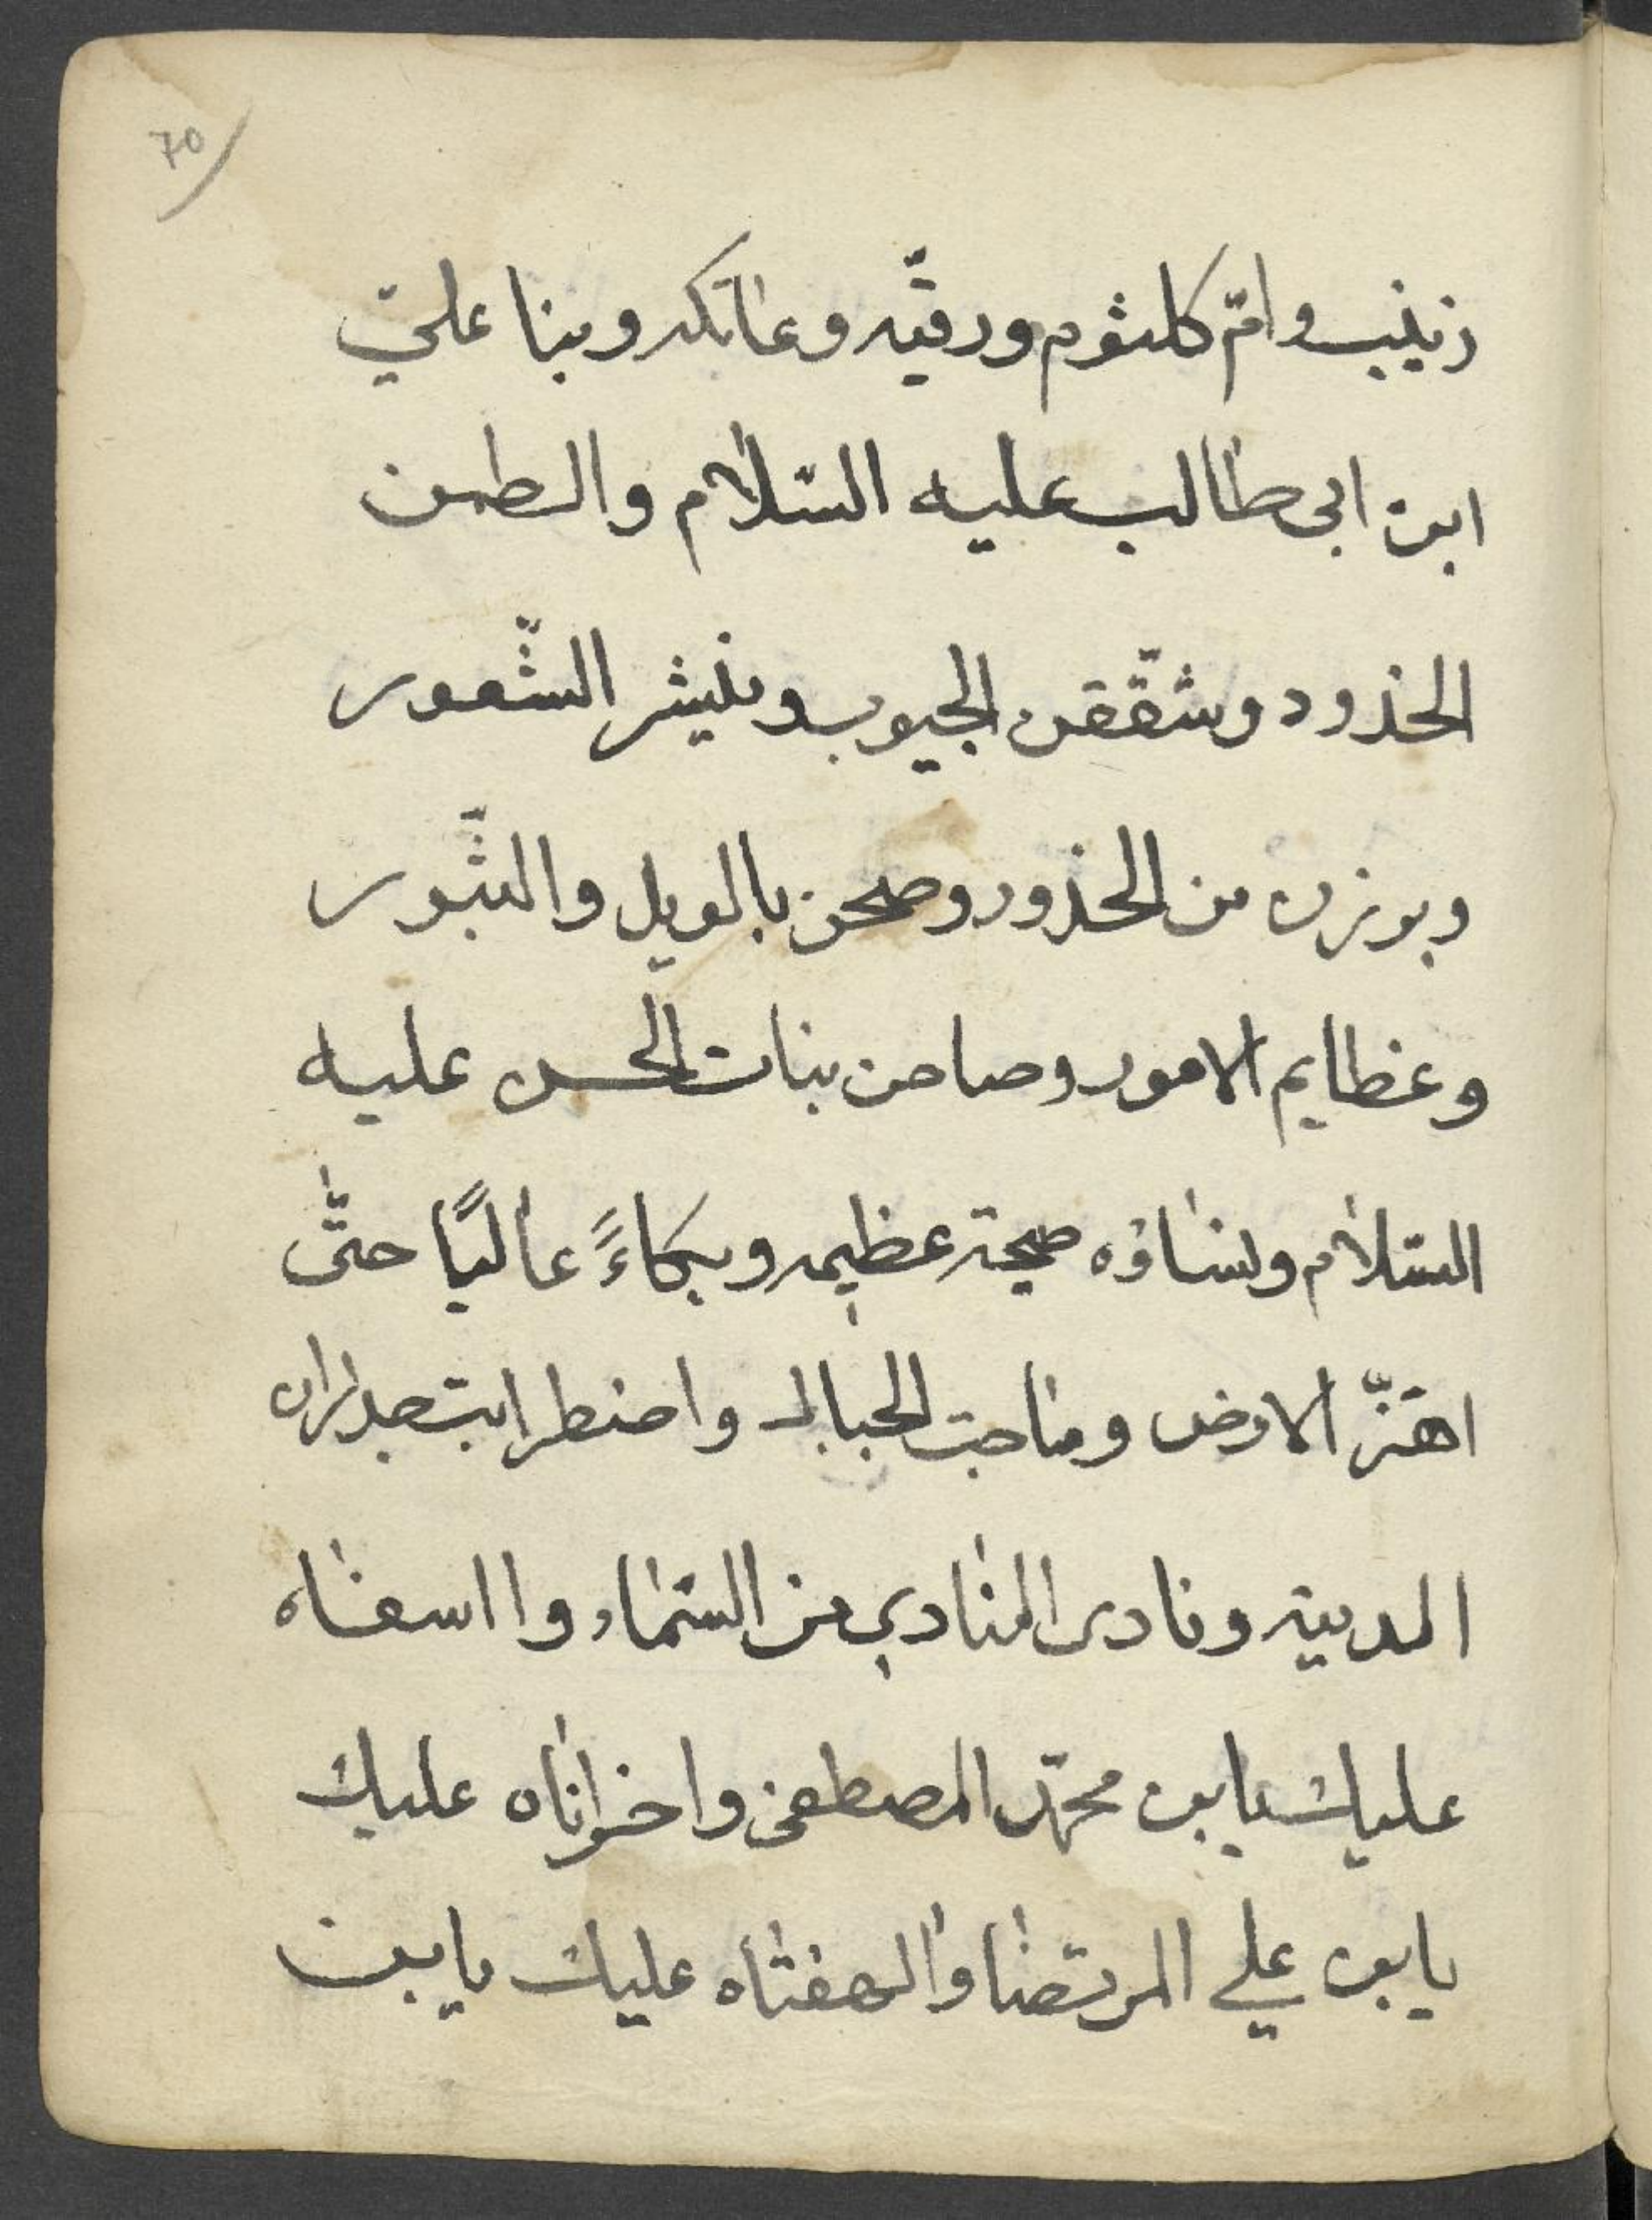 70
زينب وامّ كلثوم ورقيّه وعاتكه وبنا علي
ابن ابى طالب عليه السّلام والطمن
الخذود وشقّقن الجيوب ونيشر الشّعور
وبرزن من الخذور وصحن بالويل والثّبور
وعظايم الامور وصاحن بنات الحسن عليه
السّلام ونساؤه صيحة عظيمه وبكاءً عاليًا حتّى
اهتزّ الارض وماجت الجبال واضطرابت جدران
المدينه ونادى المنادي من السّماء وا اسفاه
عليك يابن محمّد المصطفى واحزاناه عليك
يابن علي المرتضا والهفتاه عليك يابن